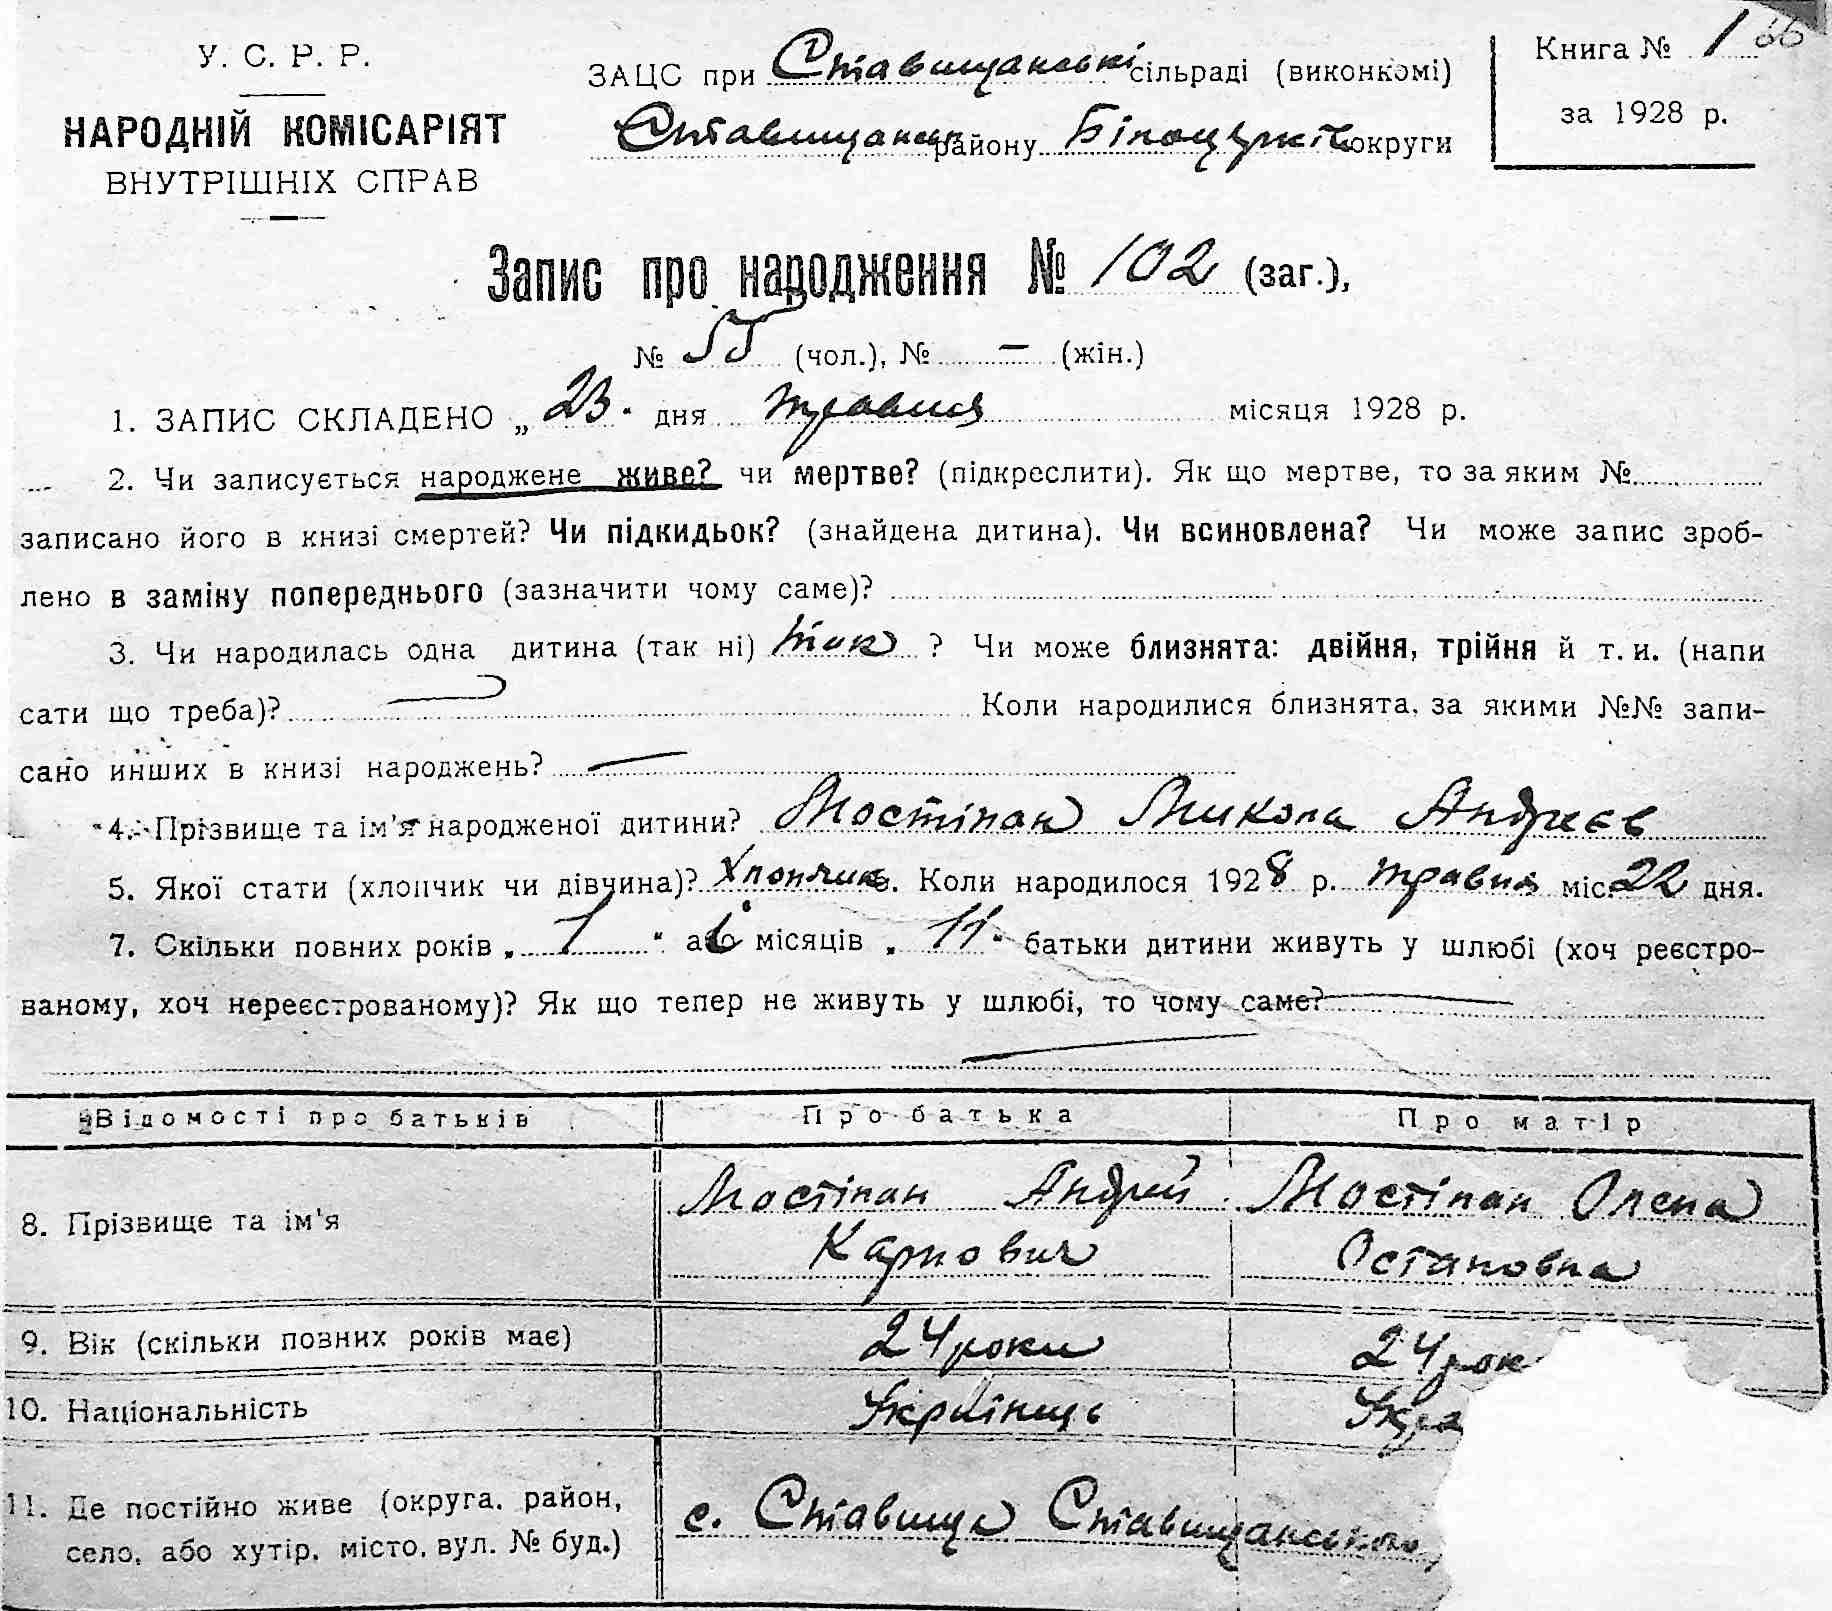 У. С. Р. Р.
НАРОДНІЙ КОМІСАРІЯТ
ВНУТРІШНІХ СПРАВ
ЗАЦС при Ставищанські сільраді (виконкомі)
Ставищанськ району Білоцерків округи
Книга № 1
за 1928 р.
Запис про народження № 102 (заг.),
№ 55 (чол.), № — (жін.)
1. ЗАПИС СКЛАДЕНО „ 23 " дня травня місяця 1928 р.
2. Чи записується народжене живе? чи мертве? (підкреслити). Як що мертве, то за яким №
записано його в книзі смертей? Чи підкидьок? (знайдена дитина). Чи всиновлена? Чи може запис зроб-
лено в заміну попереднього (зазначити чому саме)?
3. Чи народилась одна дитина (так ні) так ? Чи може близнята: двійня, трійня й т. и. (напи
сати що треба)? — Коли народилися близнята, за якими №№ запи-
сано инших в книзі народжень? —
4. Прізвище та ім'я народженої дитини? Мостіпан Микола Андреєв
5. Якої стати (хлопчик чи дівчина)? Хлопчик. Коли народилося 1928 р. травня міс. 22 дня.
7. Скільки повних років „ 1 " або місяців „ 11 " батьки дитини живуть у шлюбі (хоч реєстро-
ваному, хоч нереєстрованому)? Як що тепер не живуть у шлюбі, то чому саме? —
Відомості про батьків Про батька Про матір
8. Прізвище та ім'я Мостіпан Андрей Мостіпан Олена
Карпович Остаповна
9. Вік (скільки повних років має) 24 роки 24 рок
10. Національність Українець Укра
11. Де постійно живе (округа, район, с. Ставища Ставищанського
село, або хутір, місто, вул. № буд.)